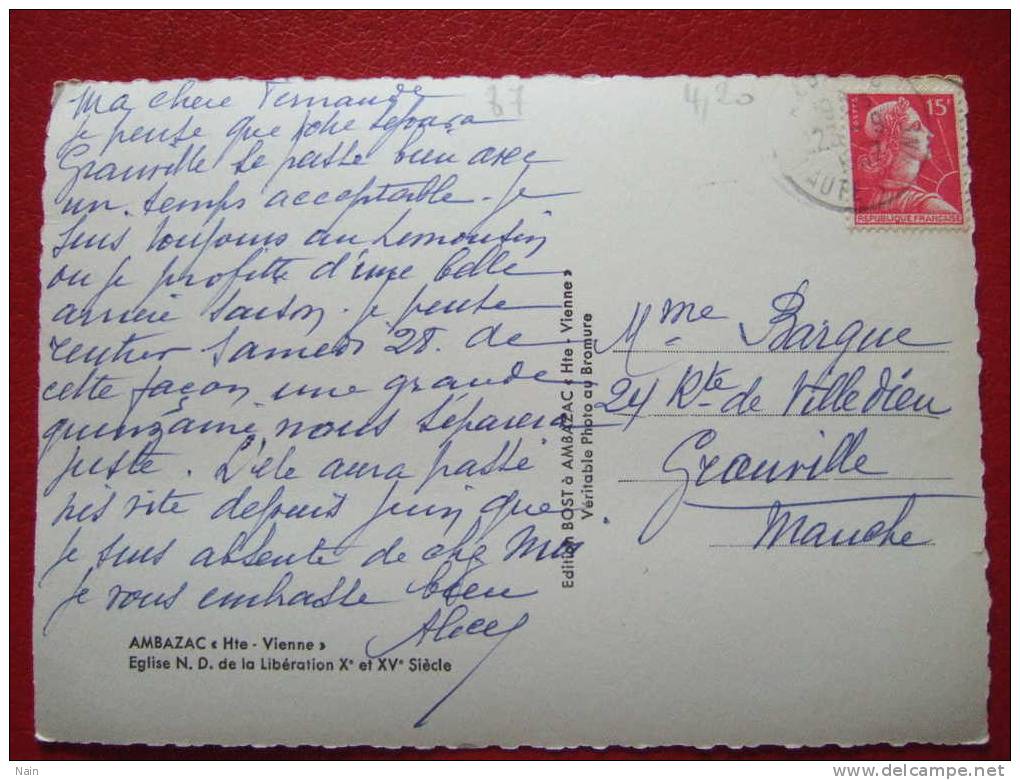 Ma chère Fernande
je pense que votre séjour a
Granville se passe bien avec
un temps acceptable. Je
suis toujours au Limousin
ou je profitte d'une belle
arrière saison. je pense
rentrer Samedi 28. de
cette façon une grande
quinzaine nous séparera
juste. L'été aura passé
très vite depuis juin que
je suis absente de chez moi
je vous embrasse bien
AMBAZAC « Hte - Vienne »
Eglise N. D. de la Libération Xe et XVe Siècle
Edition BOST à AMBAZAC « Hte - Vienne »
Véritable Photo au Bromure
87
4,20
15F
POSTES
REPUBLIQUE FRANÇAISE
Mme Barque
24 Rte de Villedieu
Granville
Manche
Nain
www.delcampe.net